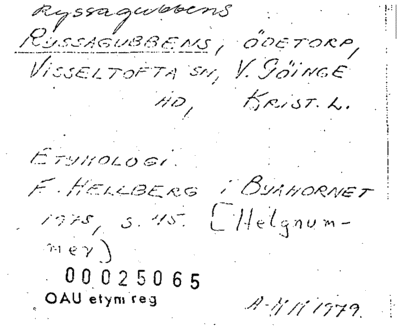 Ryssagubbens
RYSSAGUBBENS, ÖDETORP,
VISSELTOFTA SN, V. GÖINGE
HD, KRIST. L.
ETYMOLOGI.
F. HELLBERG i BYAHORNET
1975, s. 45. [Helgnum-
mer)
00025065
OAU etym reg
A-M M 1979.